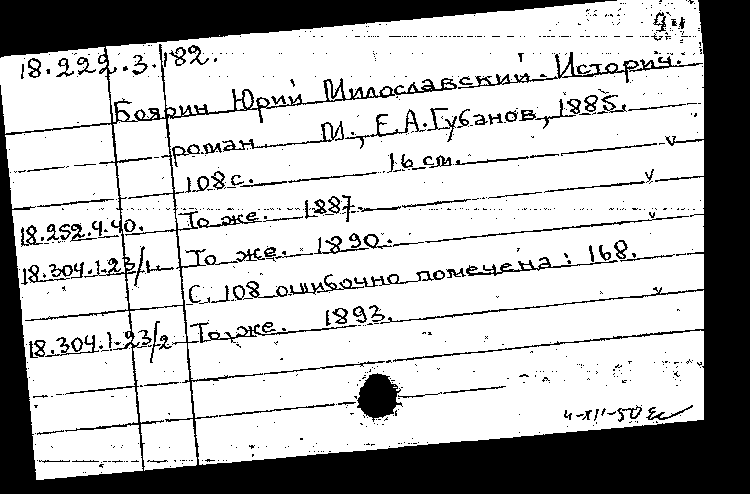 94
18.222.3.182.
Боярин Юрий Милославский. Историч.
роман. М., Е.А.Губанов, 1885.
108 с. 16 см. v
18.252.4.40. То же. 1887. v
18.304.1.23/1. То же. 1890. v
С. 108 ошибочно помечена: 168.
18.304.1.23/2 То же. 1893. v
4-XII-50